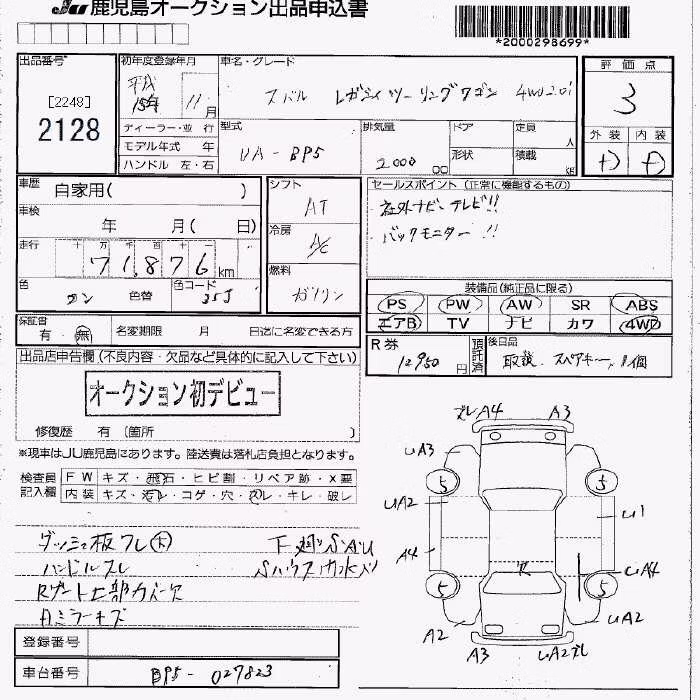 JU 鹿児島オークション出品申込書
*2000298699*
出品番号
[2248]
2128
初年度登録年月
平成
15年 11月
車名・グレード
スバル レガシィツーリングワゴン 4WD 2.0i
評価点
3
外装 内装
ディーラー・並行
モデル年式 年
ハンドル 左・右
型式
UA-BP5
排気量
2000 cc
ドア
形状
定員 人
積載 kg
車歴 自家用( )
車検 年 月( 日)
走行 十 万 千 百 十 一
71,876 km
色 ガン 色替 色コード 35J
シフト
AT
冷房
A/C
燃料
ガソリン
セールスポイント (正常に機能するもの)
社外ナビ・テレビ!!
バックモニター!!
装備品(純正品に限る)
PS PW AW SR ABS
エアB TV ナビ カワ 4WD
保証書 有・無 名変期限 月 日迄に名変できる方
R券 12950円 預託済
後日品
取説、スペアキー1個
出品店申告欄 (不良内容・欠品など具体的に記入して下さい)
オークション初デビュー
修復歴 有 (箇所 )
※現車はJU鹿児島にあります。陸送費は落札店負担となります。
検査員記入欄
FW キズ・飛石・ヒビ割・リペア跡・X要
内装 キズ・汚レ・コゲ・穴・スレ・キレ・破レ
ダッシュ板フレ 大
ハンドルスレ
Rゲート上部
ミラーキズ
下廻りSAU
ズレ A4 A3
UA3
5 5
UA2 U1
A4 R UA4
5 5
A2 UA2
A3 UA2ズレ
登録番号
車台番号 BP5-027823